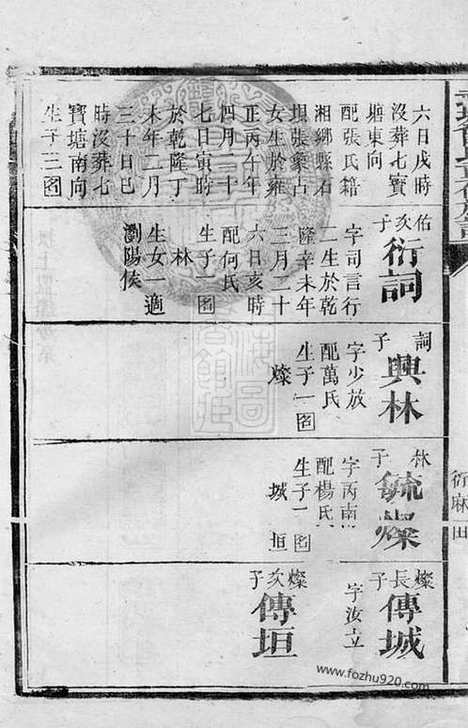 六日戌時
沒葬七寶
塘東向
配張氏籍
湘鄉縣石
垻張蒙古
女生於雍
正丙午年
四月二十
七日寅時
於乾隆丁
未年二月
三十日巳
時沒葬七
寶塘南向
生子三图
佑次子
衍詞
字司言行
二生於乾
隆辛未年
三月二十
六日亥時
配何氏
生子一图
林
生女一適
瀏陽侯
詞子
興林
字少放
配萬氏
生子一图
燦
林子
毓燦
字丙南
配楊氏
生子二图
城 垣
燦長子
傳城
字汝立
燦次子
傳垣
衍麻田
www.fozhu920.com